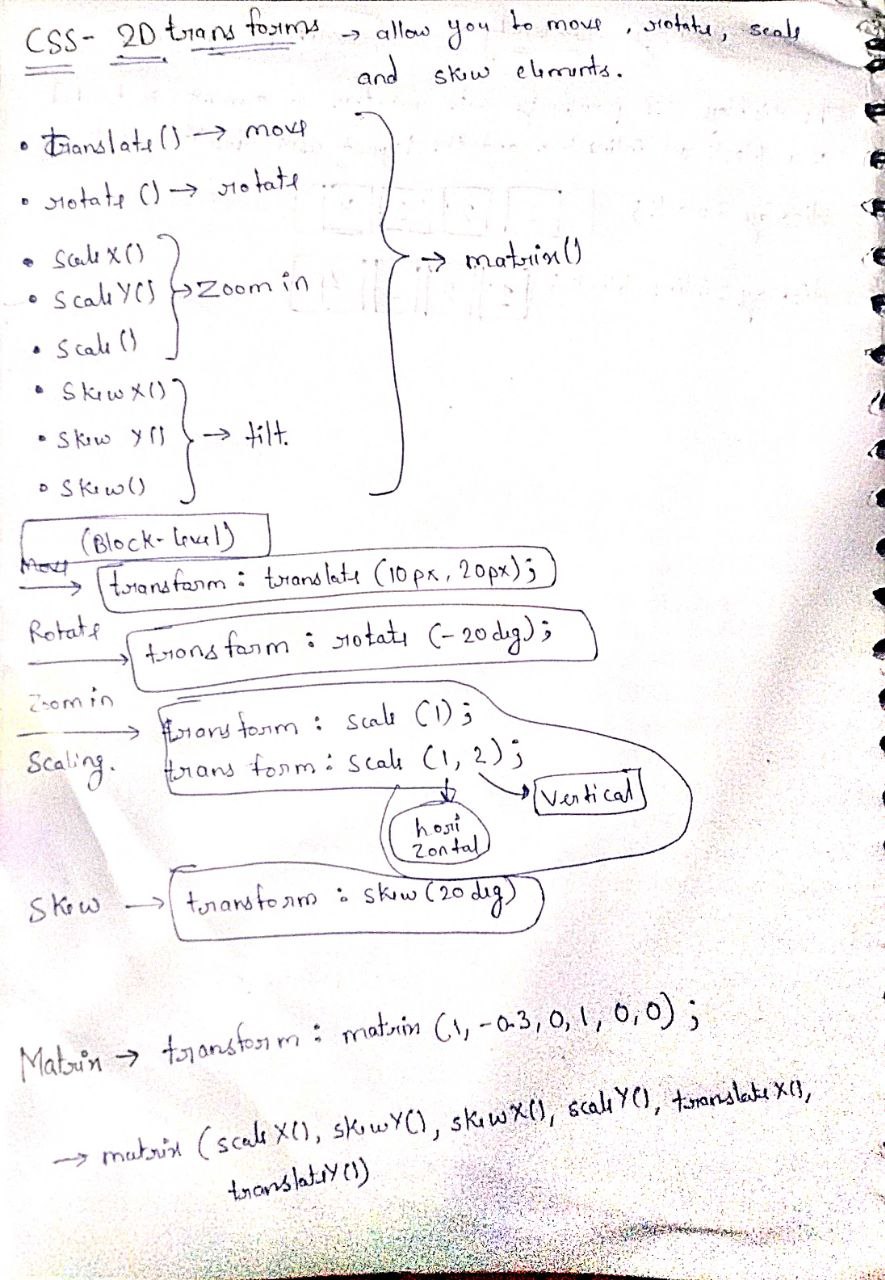 CSS - 2D transforms → allow you to move, rotate, scale
and skew elements.
• translate() → move
• rotate () → rotate
• ScaleX()
• ScaleY() → Zoom in
• Scale()
→ matrix()
• SkewX()
• Skew Y() → tilt.
• Skew()
(Block-level)
Move → transform : translate (10px, 20px);
Rotate → transform : rotate (-20deg);
Zoom in → transform : scale (1);
Scaling. transform : scale (1, 2);
Vertical
hori
zontal
Skew → transform : skew (20deg)
Matrix → transform : matrix (1, -0.3, 0, 1, 0, 0);
→ matrix (scaleX(), skewY(), skewX(), scaleY(), translateX(),
translateY())